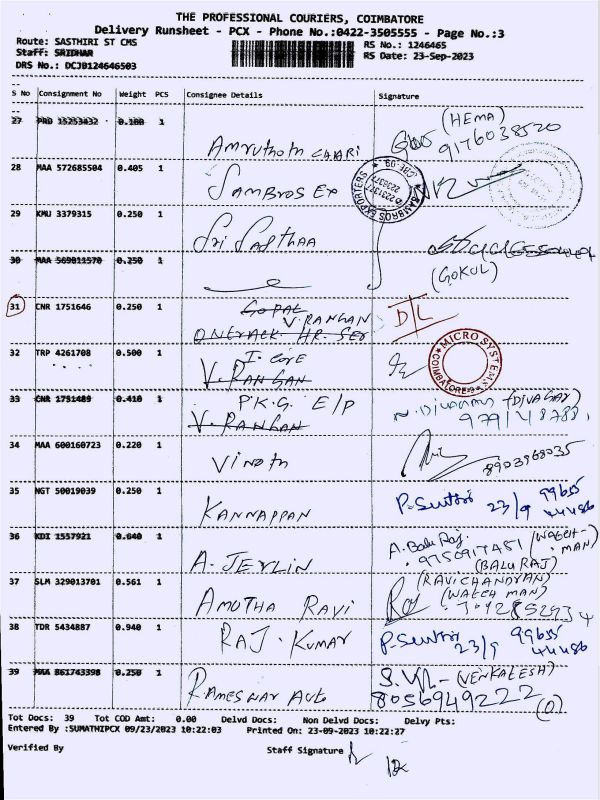 THE PROFESSIONAL COURIERS, COIMBATORE
Delivery Runsheet - PCX - Phone No.:0422-3505555 - Page No.:3
Route: SASTHIRI ST CMS RS No.: 1246465
Staff: SRIDHAR RS Date: 23-Sep-2023
DRS No.: DCJB124646503
S No Consignment No Weight PCS Consignee Details Signature
27 PRD 15253432 0.100 1 (HEMA)
9176038520
28 MAA 572685504 0.405 1 SAMBROS EX
SAMBROS EXPORTERS
29 KMU 3379315 0.250 1 Sri Sasthaa
30 MAA 569811570 0.250 1 (GOKUL)
31 CNR 1751646 0.250 1 GOPAL
V. RANGAN D/L
32 TRP 4261708 0.500 1 I. CORE
V. RANGAN
MICRO SYSTEMS COIMBATORE-9
33 CNR 1751489 0.410 1 P.K.G. E/P
V. RANGAN
34 MAA 600160723 0.220 1 Vinoth 8903968035
35 NGT 50019039 0.250 1 KANNAPPAN 23/9 99655
44486
36 KDI 1557921 0.040 1 A. JERLIN A. Balu Raj. (WATCH-MAN)
9750917481
(BALU RAJ)
37 SLM 329013701 0.561 1 AMUTHA RAVI (RAVICHANDRAN)
(WATCH MAN)
38 TDR 5434887 0.940 1 RAJ. KUMAR 23/9 99655
44486
39 MAA 861743398 0.250 1 RAMESWAR Auto (VENKATESH)
8056949222
Tot Docs: 39 Tot COD Amt: 0.00 Delvd Docs: Non Delvd Docs: Delvy Pts:
Entered By :SUMATHIPCX 09/23/2023 10:22:03 Printed On: 23-09-2023 10:22:27
Verified By Staff Signature